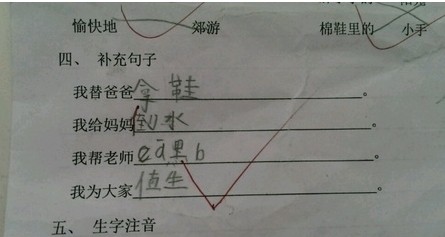 愉快地 郊游 棉鞋里的 小手
四、补充句子
我替爸爸拿鞋。
我给妈妈倒水。
我帮老师cā黑b。
我为大家值生。
五、生字注音